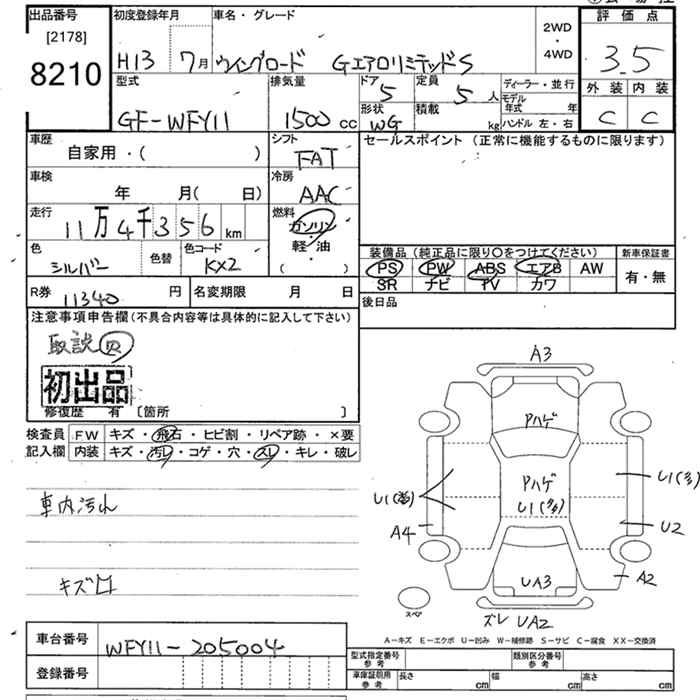 出品番号
[2178]
8210
初度登録年月
H13 7月
車名・グレード
ウイングロード GエアロリミテッドS
2WD
・
4WD
評価点
3.5
外装 内装
C C
型式
GF-WFY11
排気量
1500 cc
ドア
5
定員
5 人
形状
WG
積載
kg
ディーラー・並行
モデル年式 年
ハンドル 左・右
車歴
自家用・( )
シフト
FAT
車検
年 月( 日)
冷房
AAC
走行
11万4千356 km
燃料
ガソリン
・
軽・油
( )
色
シルバー
色替
色コード
KX2
セールスポイント (正常に機能するものに限ります)
装備品 (純正品に限り○をつけてください)
PS PW ABS エアB AW
SR ナビ TV カワ
新車保証書
有・無
後日品
R券
11340 円
名変期限 月 日
注意事項申告欄(不具合内容等は具体的に記入して下さい)
取説
初出品
修復歴 有 [箇所 ]
検査員
記入欄
FW キズ・飛石・ヒビ割・リペア跡・×要
内装 キズ・汚レ・コゲ・穴・スレ・キレ・破レ
車内汚れ
キズ
A3
Pハゲ
Pハゲ
U1(多)
U1
U1(多)
A4
U2
A2
UA3
ズレ UA2
スペア
A-キズ E-エクボ U-凹み W-補修跡 S-サビ C-腐食 XX-交換済
車台番号
WFY11-205004
登録番号
型式指定番号
参考
類別区分番号
参考
車庫証明用
参考
長さ cm
幅 cm
高さ cm